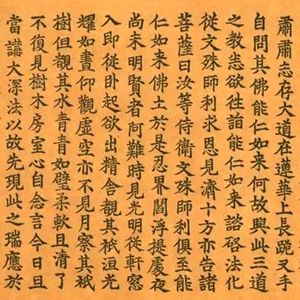 肅肅志存大道在蓮華上長跪叉手
自問其佛能仁如來何故興此三道
之教悉欲往詣能仁如來諮啓法化
從文殊師利求恩見濟十方亦告諸
菩薩曰汝等侍衛文殊師利俱至能
仁如來佛土於是忍界閻浮提處夜
尚未明賢者阿難時見光明從軒窓
入即從卧起欲出精舍觀其祇洹光
耀如晝仰觀虛空亦不見月察其祇
樹但觀其水青青如璧柔軟且清了
不復見樹木房室心自念言今日且
當講大深法以故先現此之瑞應於